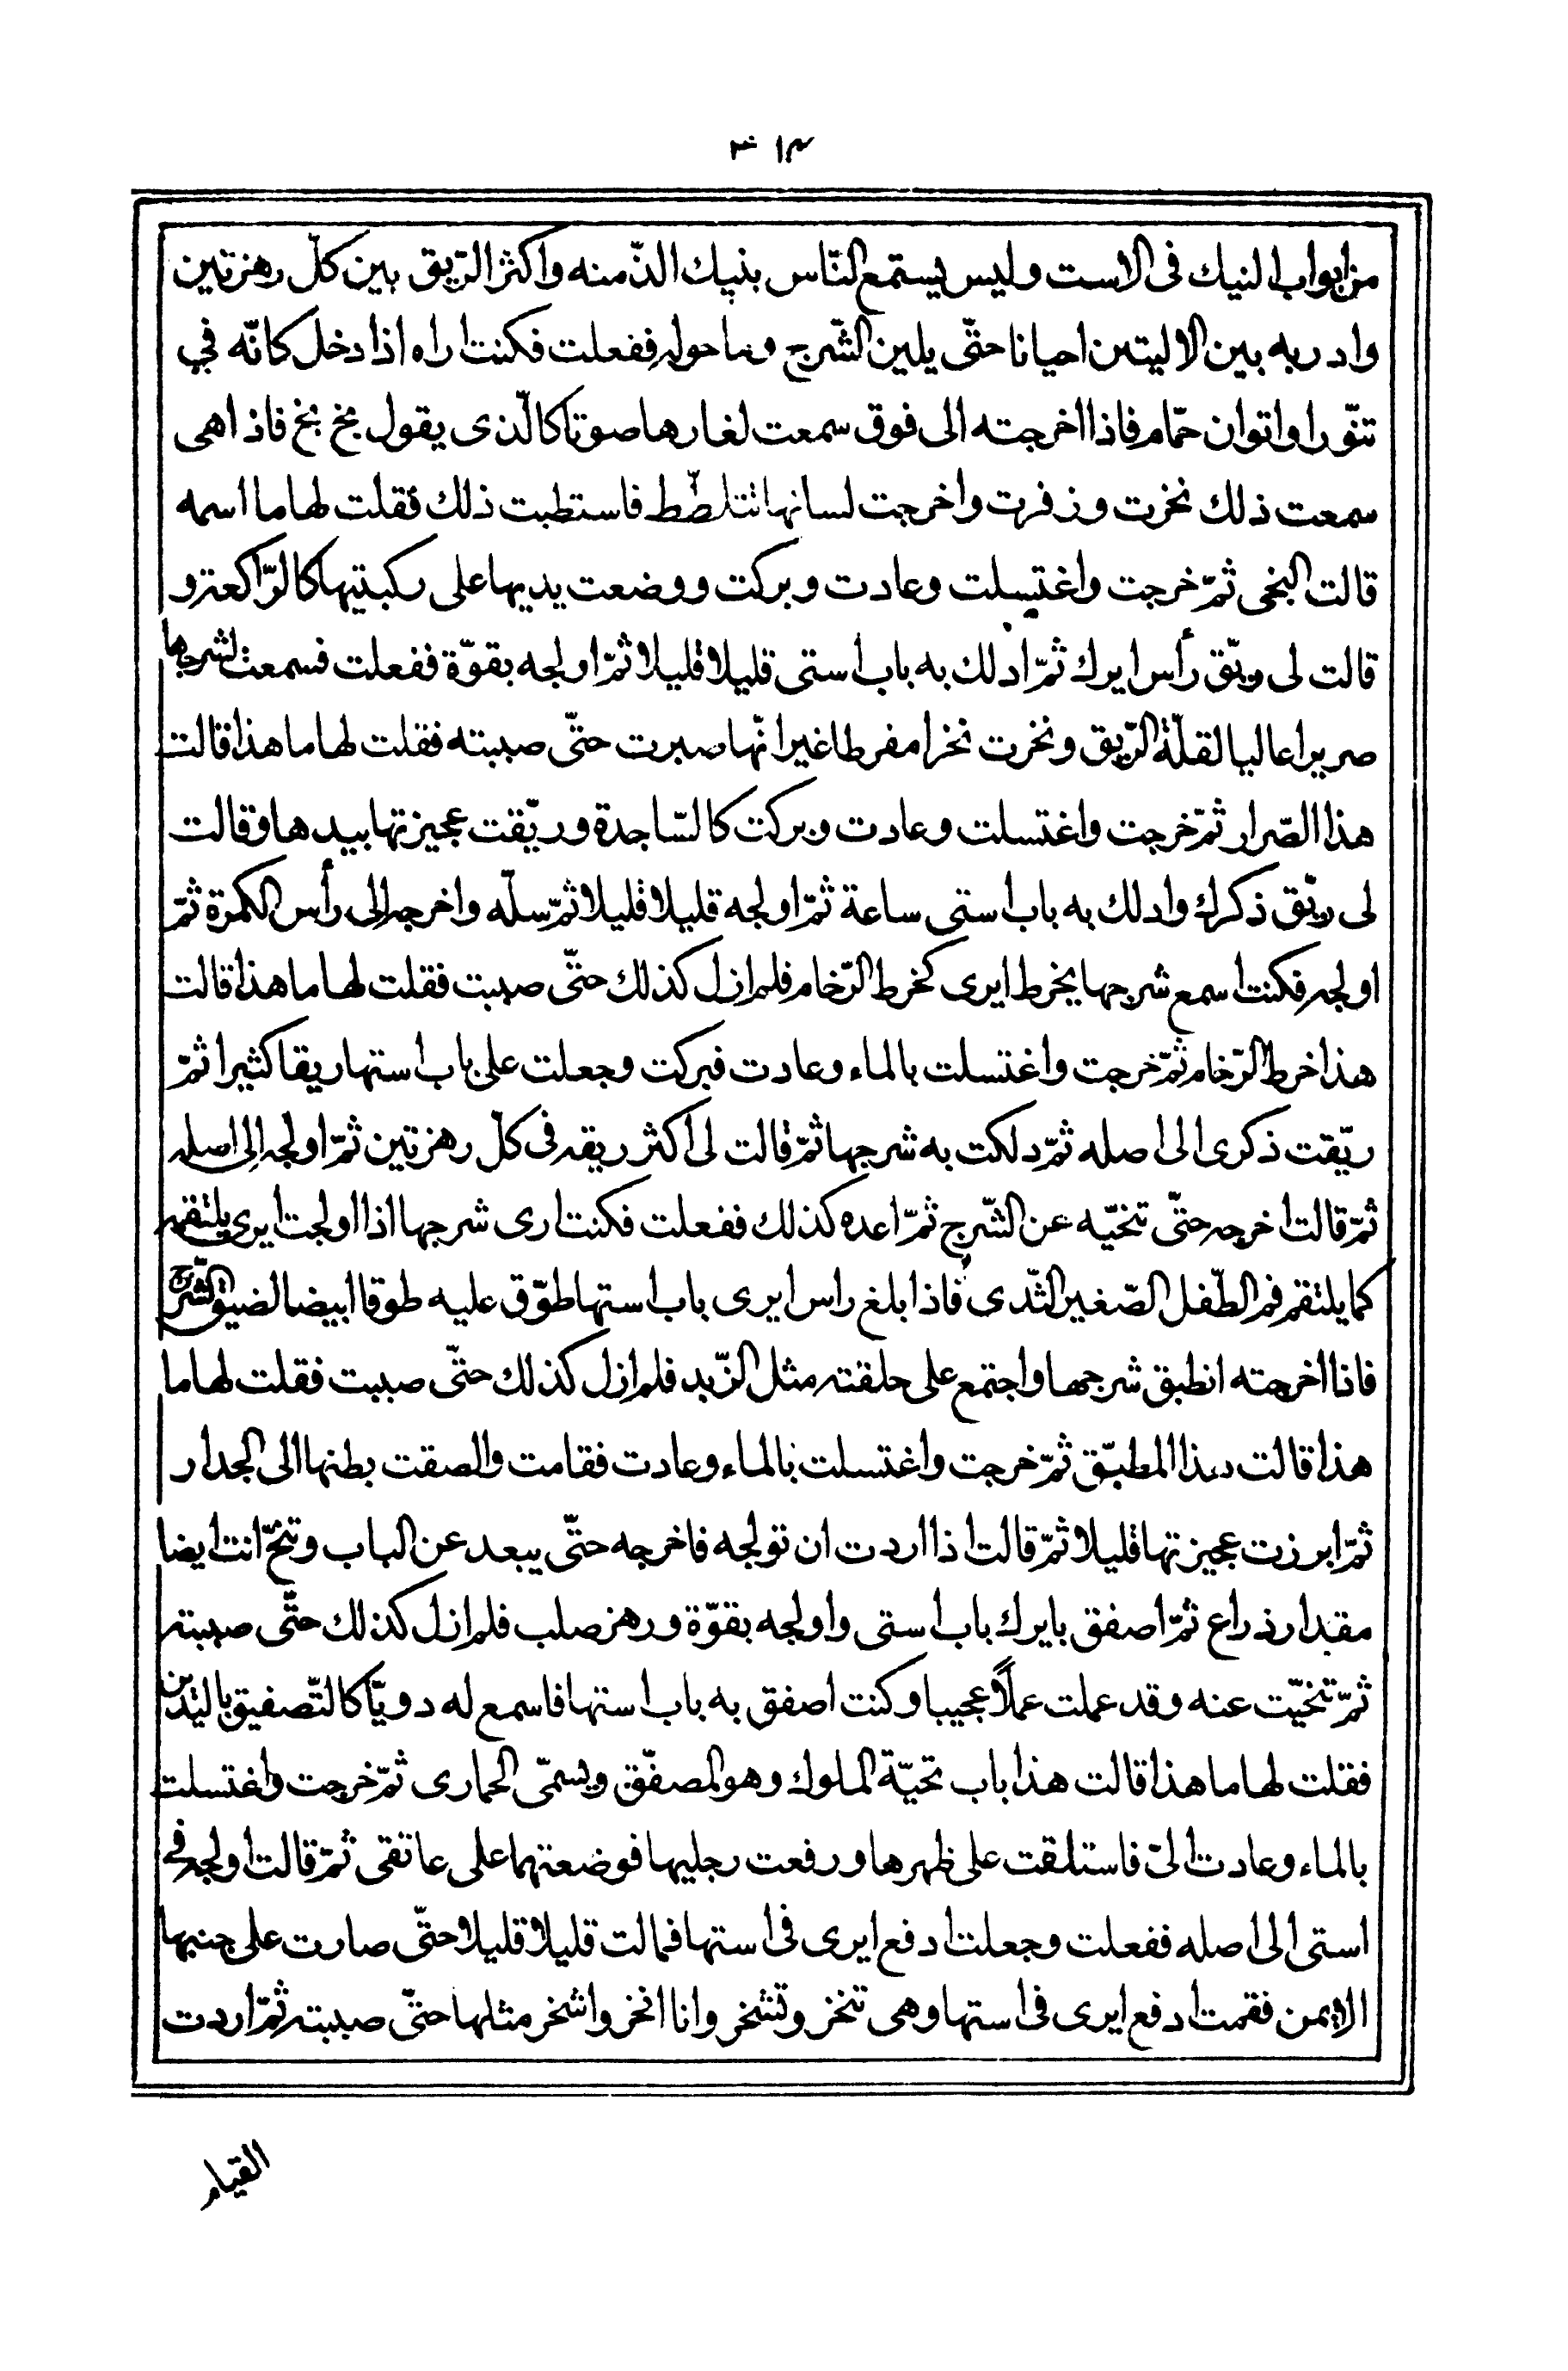 ٣١٤
من ابواب النيك فى الاست وليس يستمع النّاس بنيك الذّ منه واكثر الرّيق بين كلّ رهزتين
وادر به بين الاليتين احيانا حتّى يلين الشّرج وما حوله ففعلت فكنت اراه اذا دخل كانّه في
تنّور او اتوان حمّام فاذا اخرجته الى فوق سمعت لغارها صوتا كالّذى يقول بخ بخ فاذا هى
سمعت ذلك نخرت وزفرت واخرجت لسانها تتلضّط فاستطبت ذلك فقلت لها ما اسمه
قالت البخى ثمّ خرجت واغتسلت وعادت وبركت ووضعت يديها على ركبتيها كالرّاكعة و
قالت لى ريّق رأس ايرك ثمّ ادلك به باب استى قليلا قليلا ثمّ اولجه بقوّة ففعلت فسمعت لشرجها
صريرا عاليا لقلّة الرّيق ونخرت نخرا مفرطا غير انّها صبرت حتّى صببته فقلت لها ما هذا قالت
هذا الصّرار ثمّ خرجت واغتسلت وعادت وبركت كالسّاجدة وريّقت عجيزتها بيدها وقالت
لى ريّق ذكرك وادلك به باب استى ساعة ثمّ اولجه قليلا قليلا ثمّ سلّه واخرجه الى رأس الكمرة ثمّ
اولجه فكنت اسمع شرجها يخرط ايرى كخرط الرّخام فلم ازل كذلك حتّى صببت فقلت لها ما هذا قالت
هذا خرط الرّخام ثمّ خرجت واغتسلت بالماء وعادت فبركت وجعلت على باب استها ريقا كثيرا ثمّ
ريّقت ذكرى الى اصله ثمّ دلكت به شرجها ثمّ قالت لى اكثر ريقه فى كلّ رهزتين ثمّ اولجه الى اصله
ثمّ قالت اخرجه حتّى تنحّيه عن الشّرج ثمّ اعده كذلك ففعلت فكنت ارى شرجها اذا اولجت ايرى يلتقمه
كما يلتقم فم الطّفل الصّغير الثّدى فاذا بلغ راس ايرى باب استها طوّق عليه طوقا ابيضا لضيق الشّرج
فانا اخرجته انطبق شرجها واجتمع على حلقته مثل الزّبد فلم ازل كذلك حتّى صببت فقلت لها ما
هذا قالت هذا المطبّق ثمّ خرجت واغتسلت بالماء وعادت فقامت والصقت بطنها الى الجدار
ثمّ ابرزت عجيزتها قليلا ثمّ قالت اذا اردت ان تولجه فاخرجه حتّى يبعد عن الباب وتنحّ انت ايضا
مقدار ذراع ثمّ اصفق بايرك باب استى واولجه بقوّة ورهز صلب فلم ازل كذلك حتّى صببته
ثمّ تنحّيت عنه وقد عملت عملاً عجيبا وكنت اصفق به باب استها فاسمع له دويّا كالتّصفيق باليدين
فقلت لها ما هذا قالت هذا باب تحيّة الملوك وهو المصفّق ويسمّى الحمارى ثمّ خرجت واغتسلت
بالماء وعادت الىّ فاستلقت على ظهرها ورفعت رجليها فوضعتهما على عاتقى ثمّ قالت اولجه فى
استى الى اصله ففعلت وجعلت ادفع ايرى فى استها فمالت قليلا قليلا حتّى صارت على جنبها
الايمن فقمت ادفع ايرى فى استها وهى تنخر وتشخر وانا انخر واشخر مثلها حتّى صببته ثمّ اردت
القيام